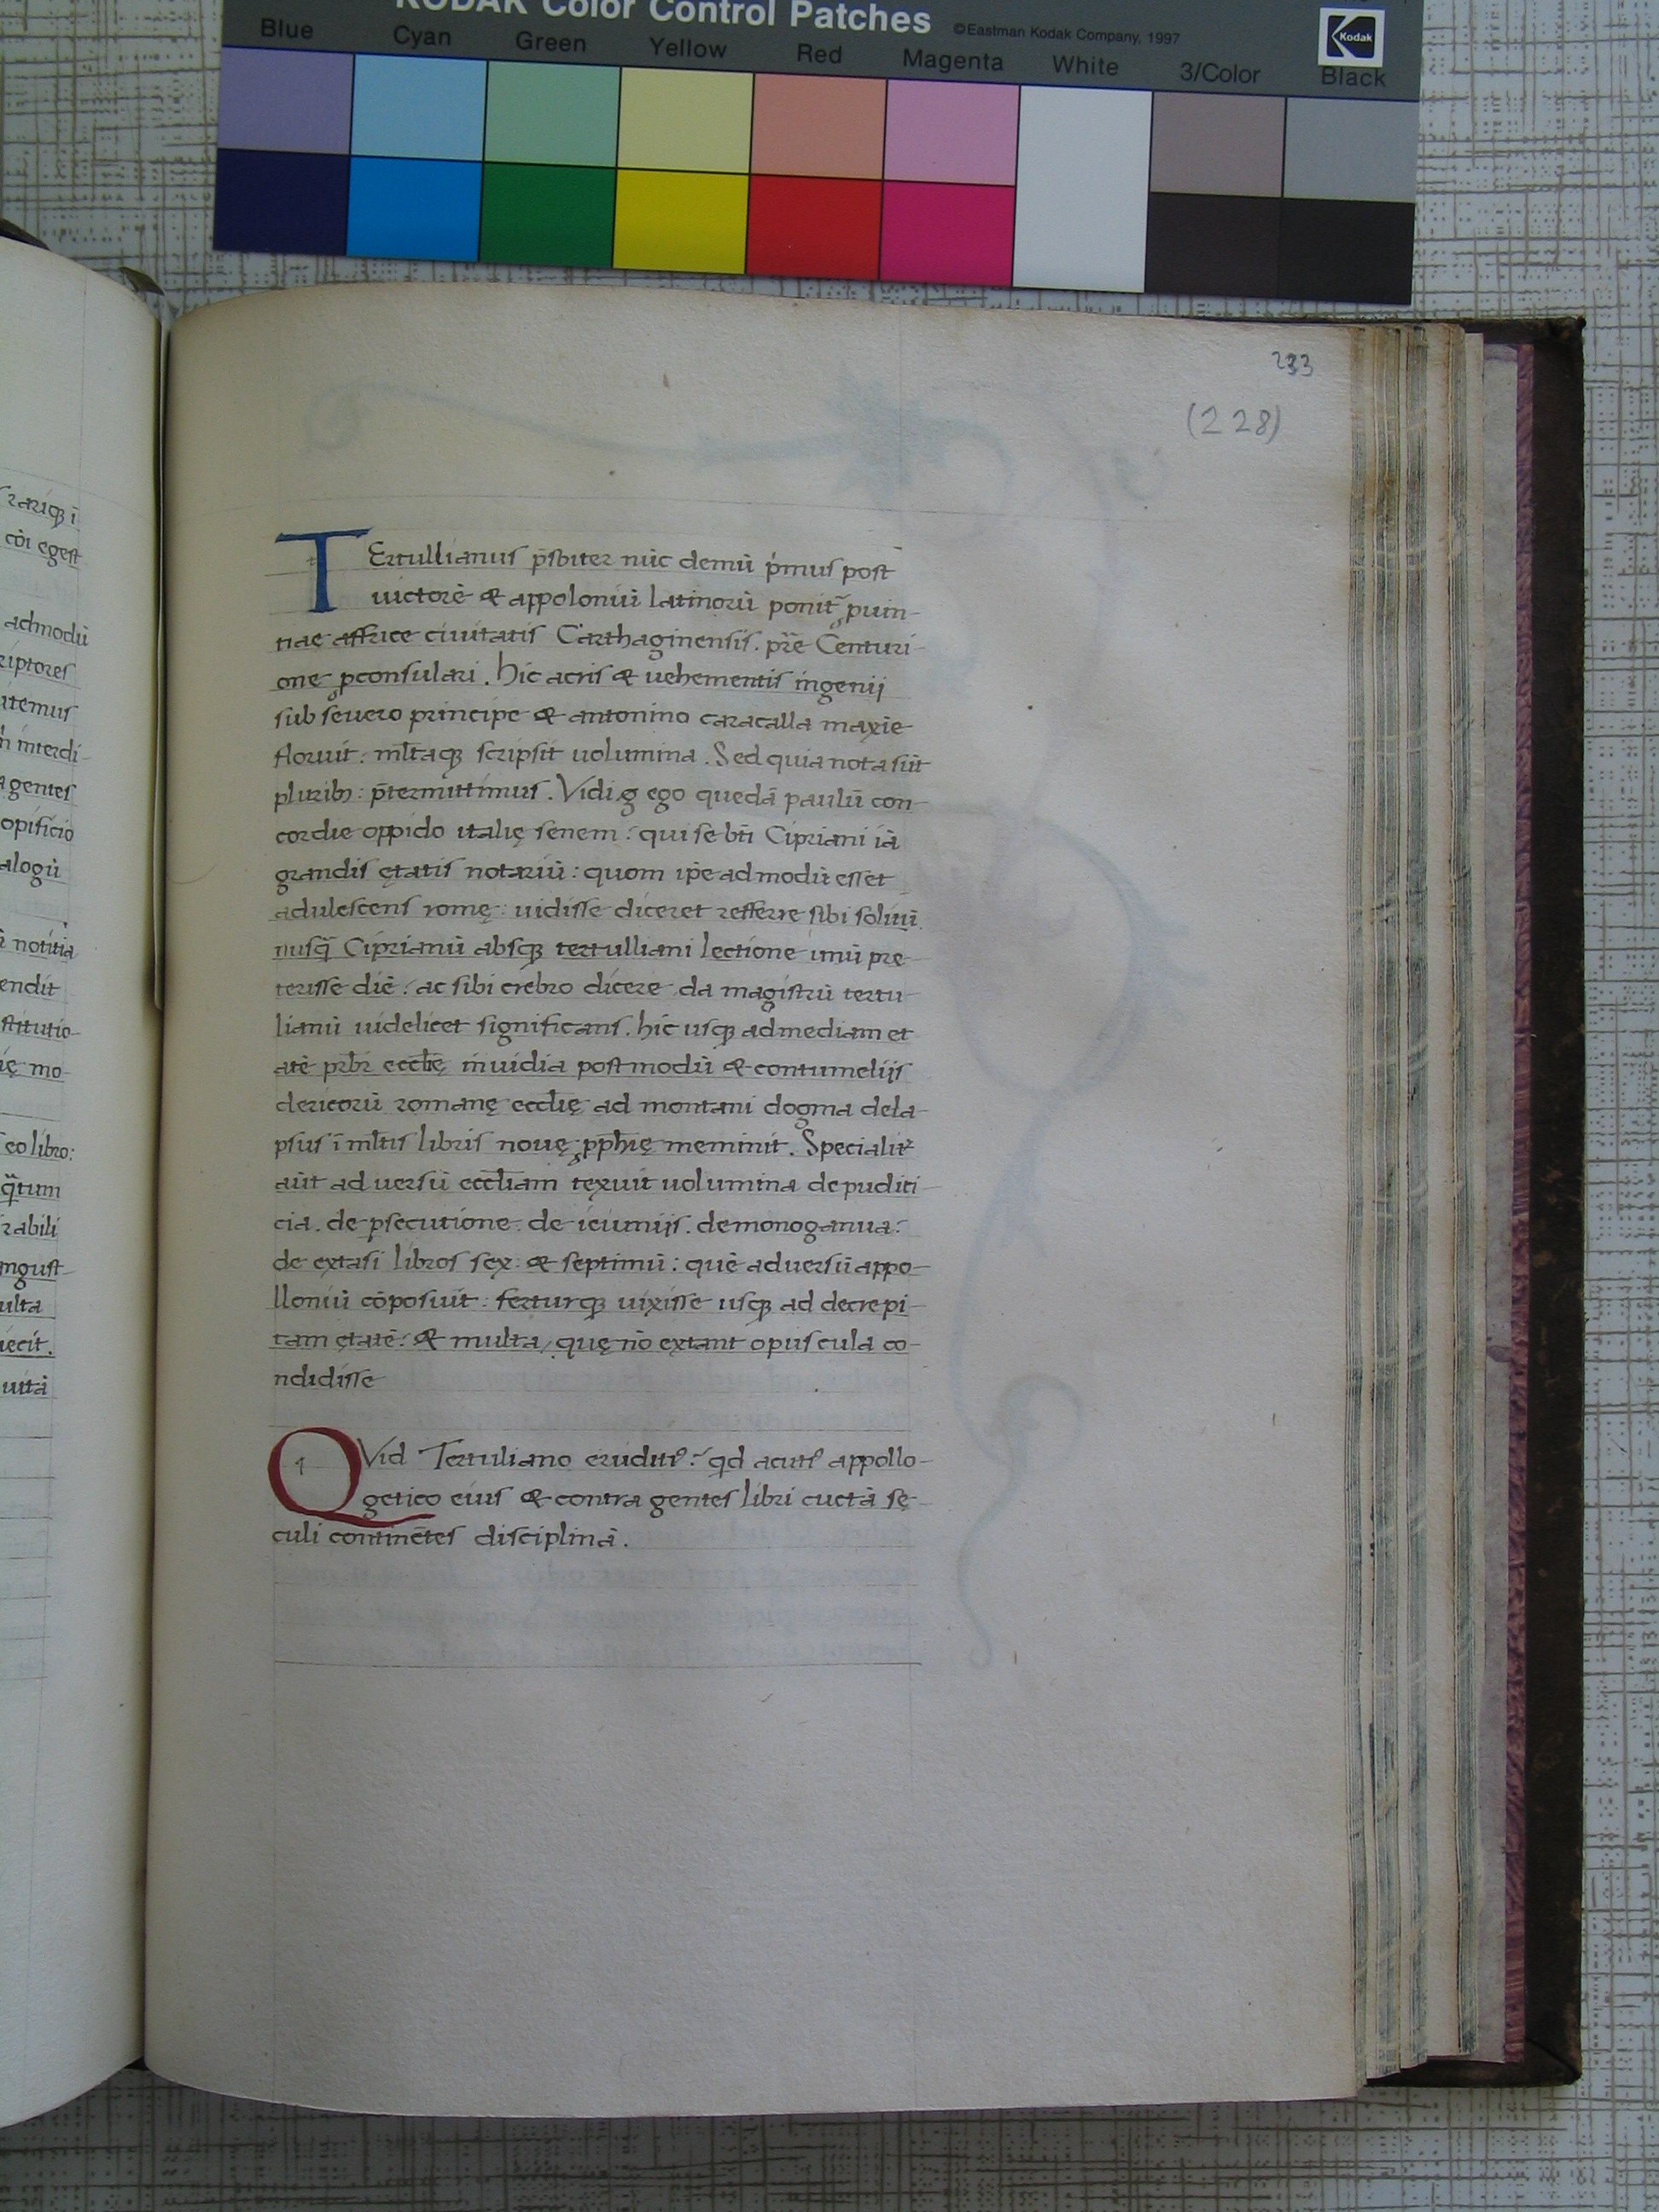 KODAK Color Control Patches
©Eastman Kodak Company, 1997
Kodak
Blue Cyan Green Yellow Red Magenta White 3/Color Black
233
(228)
rariqꝫ ī
cōi egest
admodū
riptores
utemus
interdi-
agentes
opificio
alogū
notitia
endit
stitutio-
ię mo-
eo libro:
q̄tum
rabili
ngust-
ulta
iecit.
uitā
TErtullianus p̄sbiter nūc demū pͥmus post
uictorē & appoloniū latinorū ponit᷑ ꝓuin-
tiae affrice ciuitatis Carthaginensis. pr̄e Centuri-
one ꝓconsulari. hic acris & uehementis ingenij
sub seuero principe & antonino caracalla maxīe
floruit: ml̄taqꝫ scripsit uolumina. Sed quia nota sūt
pluribꝫ: p̄termittimus. Vidi g ego quedā paulū con-
cordie oppido italię senem: qui se bti Cipriani iā
grandis ętatis notariū: quom ip̄e admodū esset
adulescens romę: uidisse diceret refferre sibi solitū
nusq̄ Ciprianū absqꝫ tertulliani lectione unū pre-
terisse diē: ac sibi crebro dicere da magistrū tertu-
lianū uidelicet significans. hic usqꝫ ad mediam et
atē prbr̄ eccl̄ię, inuidia postmodū & contumelijs
clericorū romanę eccl̄ię ad montani dogma dela-
psus ī ml̄tis libris nouę ꝓph̄ię meminit. Specialit᷑
aūt aduersū eccl̄iam texuit uolumina de puditi-
cia. de ꝑsecutione. de ieiunijs. de monogamia:
de extasi libros sex: & septimū: quē aduersū appo-
lloniū cōposuit: ferturqꝫ uixisse usqꝫ ad decrepi-
tam ętatē: & multa, quę nō extant opuscula co-
ndidisse
QVid Tertuliano eruditiꝰ: qd acutiꝰ appollo-
getico eius & contra gentes libri cuctā sę-
culi continētes disciplinā.